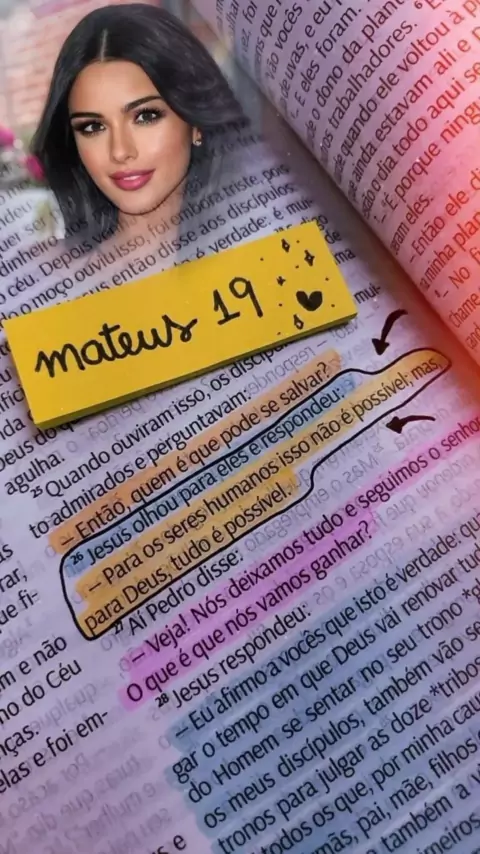 quer ser
dinheiro aos
céu. Depois ve
o moço ouviu isso, foi embora triste, por
us então disse aos discípulos:
é verdade: é mui
mateus 19
agulha.
25 Quando ouviram isso, os discípu
to admirados e perguntavam:
— Então, quem é que pode se salvar?
26 Jesus olhou para eles e respondeu:
— Para os seres humanos isso não é possível; mas,
para Deus, tudo é possível.
27 Aí Pedro disse:
— Veja! Nós deixamos tudo e seguimos o senhor
O que é que nós vamos ganhar?
28 Jesus respondeu:
— Eu afirmo a vocês que isto é verdade: qu
gar o tempo em que Deus vai renovar tud
do Homem se sentar no seu trono *g
os meus discípulos, também vão se
tronos para julgar as doze *tribos
todos os que, por minha cau
mãs, pai, mãe, filhos
também a v
rar,
que fi-
m e não
no do Céu
nças.
elas e foi em-
s e
vocês
, e eu
— E eles foram.
o dono da plant
trabalhadores. 6
quando ele voltou à p
ainda estavam ali e p
o dia todo aqui se
— É porque ningu
— Então ele di
minha plan
— No f
chame